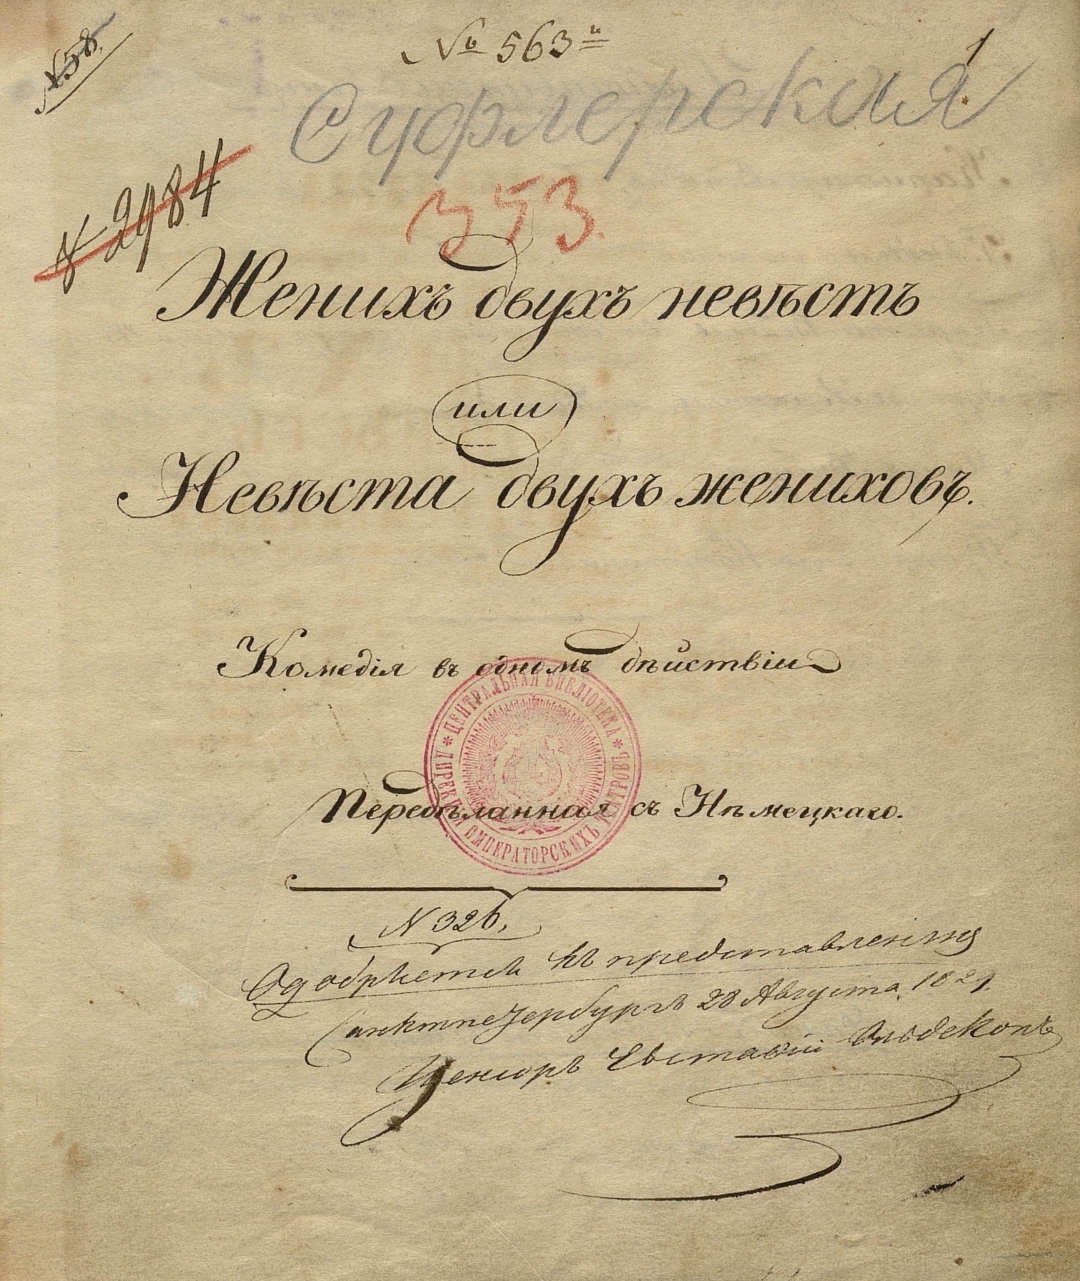 № 58.
№ 563й
1
Суфлерская
№ 2984
353.
Женихъ двухъ невѣстъ
или
Невѣста двухъ жениховъ.
Комедія въ одномъ дѣйствіи
ЦЕНТРАЛЬНАЯ БИБЛІОТЕКА
ДИРЕКЦІИ ИМПЕРАТОРСКИХЪ ТЕАТРОВЪ
Передѣланная съ Нѣмецкаго.
N 326.
Одобряется къ представленію
Санктпетербургъ 28 Августа 1829.
Ценсоръ Евстафій Ольдекопъ